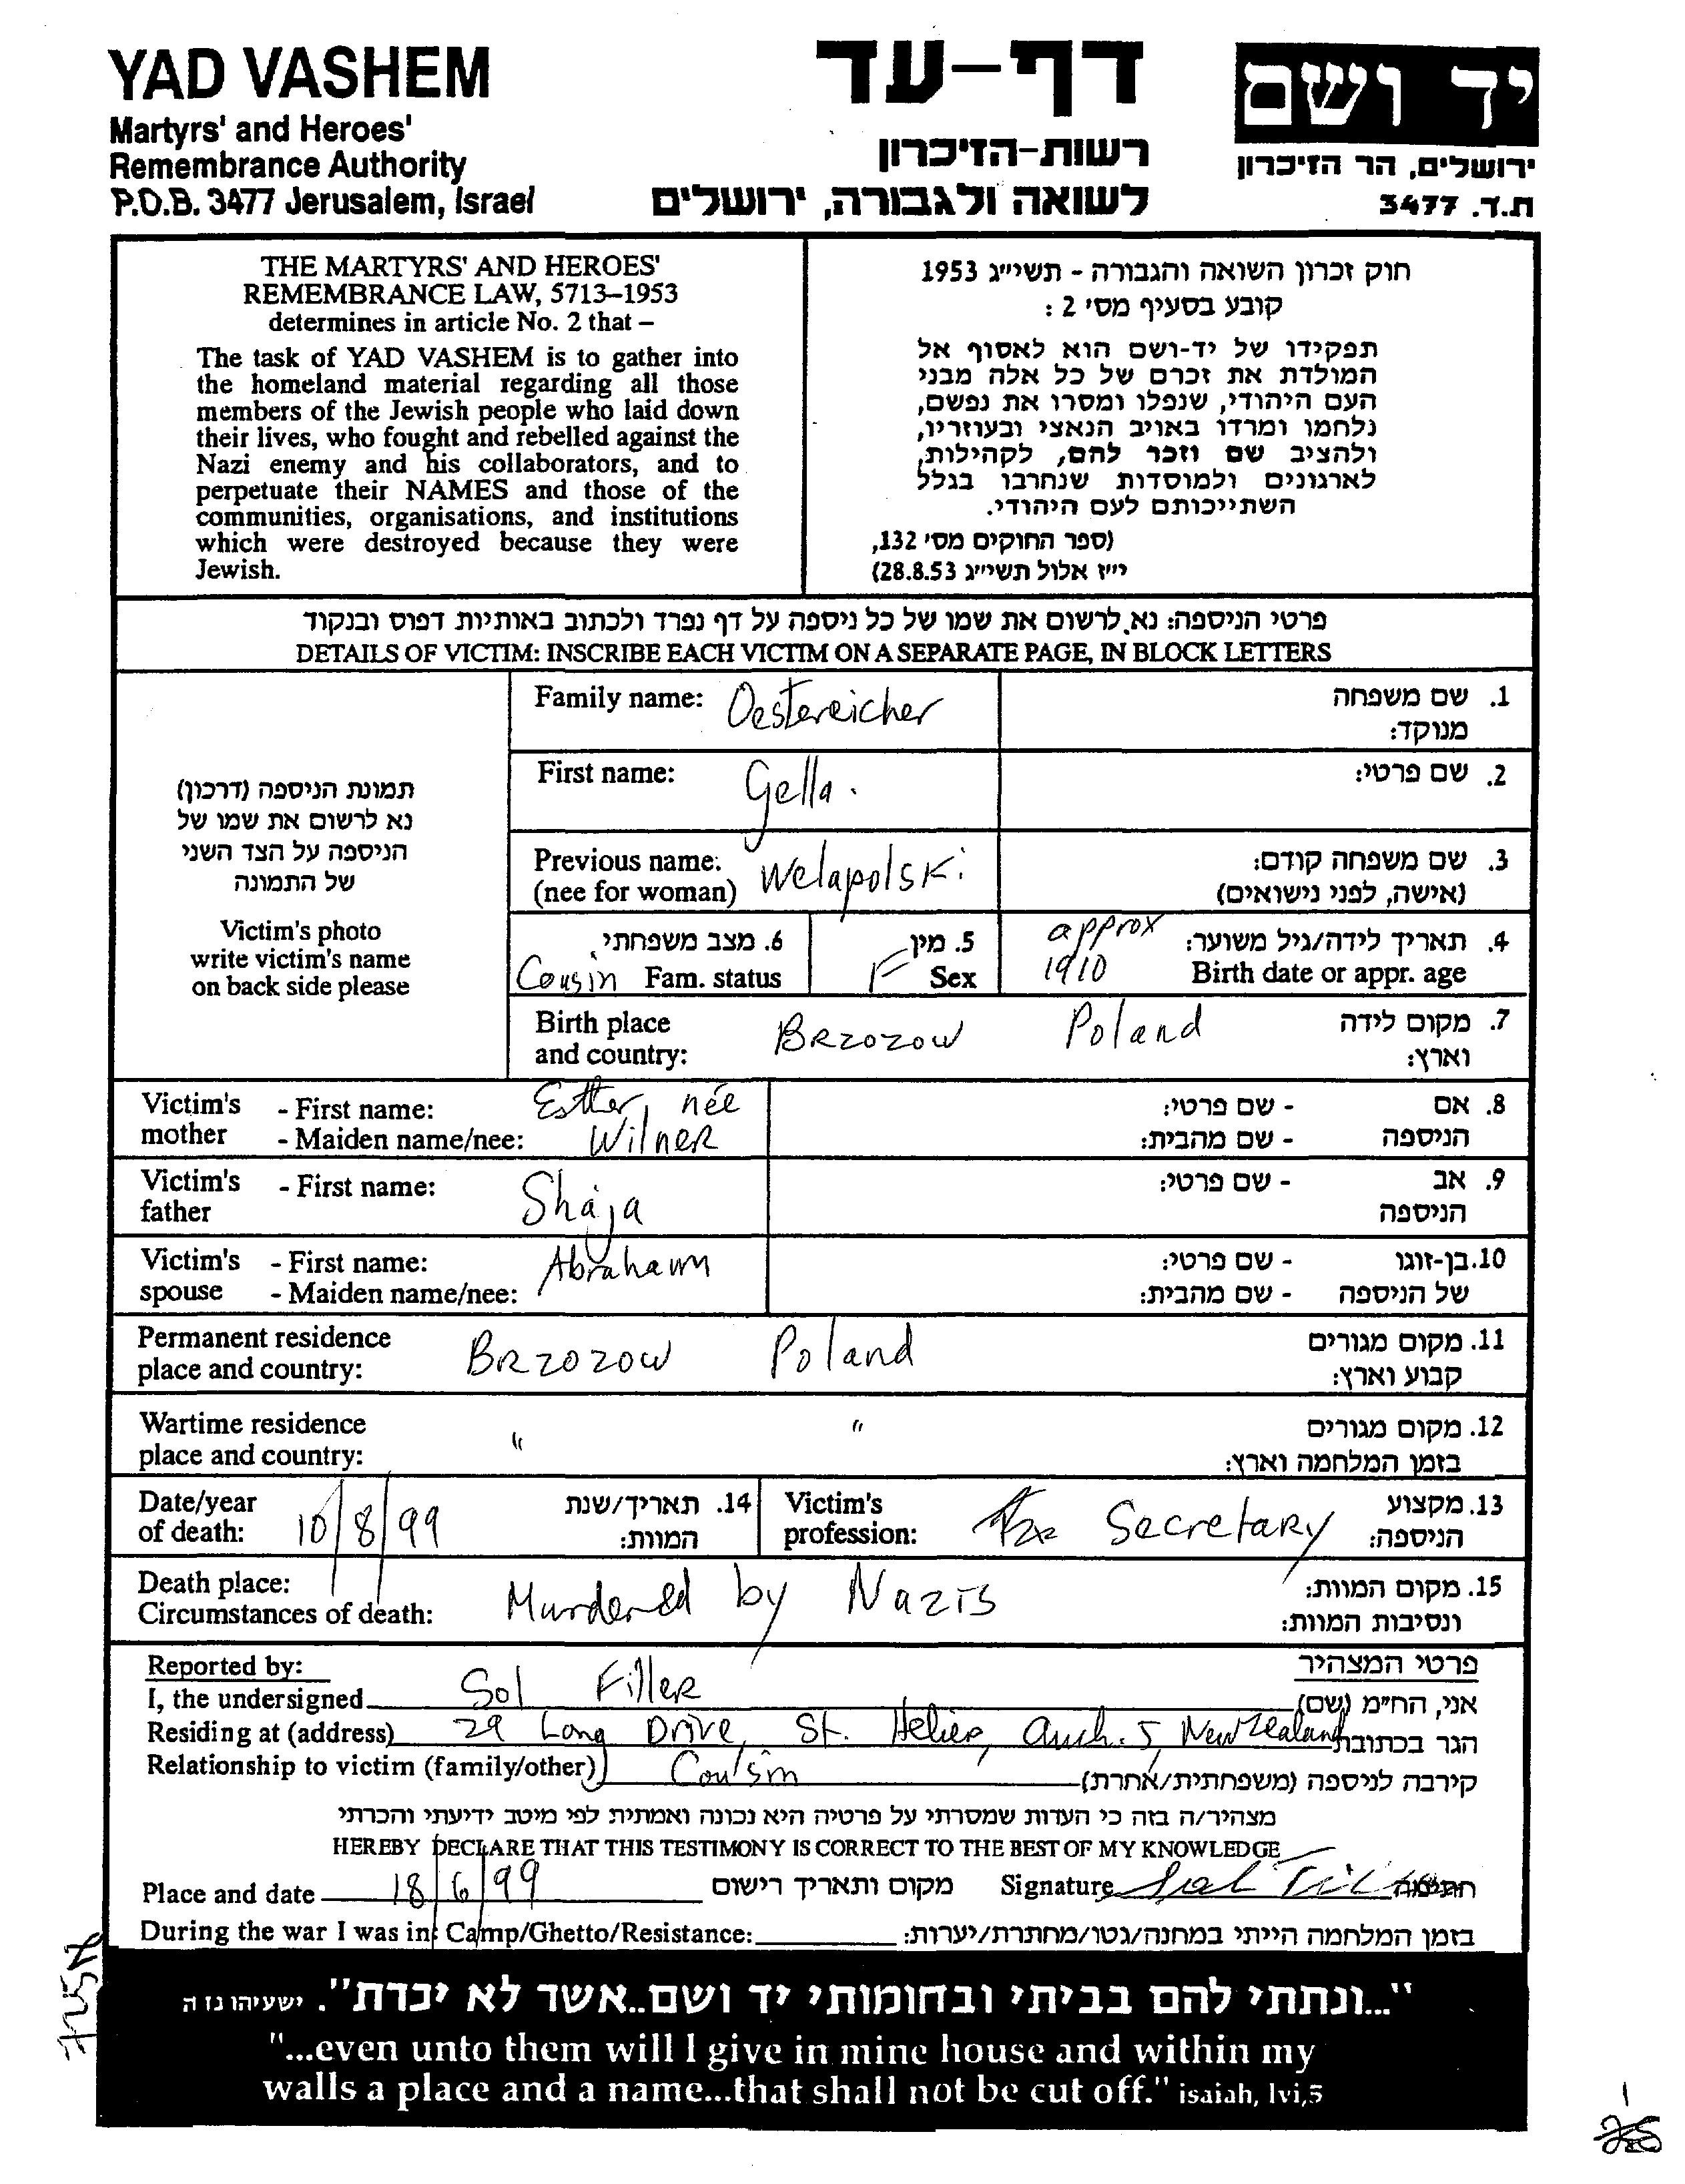 YAD VASHEM
Martyrs' and Heroes'
Remembrance Authority
P.O.B. 3477 Jerusalem, Israel
דף-עד
רשות-הזיכרון
לשואה ולגבורה, ירושלים
יד ושם
ירושלים, הר הזיכרון
ת.ד. 3477
THE MARTYRS' AND HEROES'
REMEMBRANCE LAW, 5713–1953
determines in article No. 2 that –
The task of YAD VASHEM is to gather into
the homeland material regarding all those
members of the Jewish people who laid down
their lives, who fought and rebelled against the
Nazi enemy and his collaborators, and to
perpetuate their NAMES and those of the
communities, organisations, and institutions
which were destroyed because they were
Jewish.
חוק זכרון השואה והגבורה - תשי״ג 1953
קובע בסעיף מס' 2 :
תפקידו של יד-ושם הוא לאסוף אל
המולדת את זכרם של כל אלה מבני
העם היהודי, שנפלו ומסרו את נפשם,
נלחמו ומרדו באויב הנאצי ובעוזריו,
ולהציב שם וזכר להם, לקהילות,
לארגונים ולמוסדות שנחרבו בגלל
השתייכותם לעם היהודי.
(ספר החוקים מס' 132,
י״ז אלול תשי״ג 28.8.53)
פרטי הניספה: נא לרשום את שמו של כל ניספה על דף נפרד ולכתוב באותיות דפוס ובנקוד
DETAILS OF VICTIM: INSCRIBE EACH VICTIM ON A SEPARATE PAGE, IN BLOCK LETTERS
תמונת הניספה (דרכון)
נא לרשום את שמו של
הניספה על הצד השני
של התמונה
Victim's photo
write victim's name
on back side please
Family name: Oestereicher 1. שם משפחה
מנוקד:
First name: Gella. 2. שם פרטי:
Previous name: Welapolski 3. שם משפחה קודם:
(nee for woman) (אישה, לפני נישואים)
6. מצב משפחתי 5. מין approx 4. תאריך לידה/גיל משוער:
Cousin Fam. status F Sex 1910 Birth date or appr. age
Birth place Brzozow Poland 7. מקום לידה
and country: וארץ:
Victim's - First name: Esther, née - שם פרטי: 8. אם
mother - Maiden name/nee: Wilner - שם מהבית: הניספה
Victim's - First name: Shaja - שם פרטי: 9. אב
father הניספה
Victim's - First name: Abraham - שם פרטי: 10. בן-זוגו
spouse - Maiden name/nee: - שם מהבית: של הניספה
Permanent residence Brzozow Poland 11. מקום מגורים
place and country: קבוע וארץ:
Wartime residence " " 12. מקום מגורים
place and country: בזמן המלחמה וארץ:
Date/year 14. תאריך/שנת Victim's 13. מקצוע
of death: 10/8/99 המוות: profession: Secretary הניספה:
Death place: Murdered by Nazis 15. מקום המוות:
Circumstances of death: ונסיבות המוות:
Reported by: פרטי המצהיר
I, the undersigned Sol Filler אני, הח״מ (שם)
Residing at (address) 29 Long Drive, St. Helier, Auch. 5, New Zealand הגר בכתובת
Relationship to victim (family/other) Cousin קירבה לניספה (משפחתית/אחרת)
מצהיר/ה בזה כי העדות שמסרתי על פרטיה היא נכונה ואמתית לפי מיטב ידיעתי והכרתי
HEREBY DECLARE THAT THIS TESTIMONY IS CORRECT TO THE BEST OF MY KNOWLEDGE
Place and date 18/6/99 מקום ותאריך רישום Signature Sol Filler חתימה
During the war I was in: Camp/Ghetto/Resistance: בזמן המלחמה הייתי במחנה/גטו/מחתרת/יערות:
"...ונתתי להם בביתי ובחומותי יד ושם..אשר לא יכרת". ישעיהו נו ה
"...even unto them will I give in mine house and within my
walls a place and a name...that shall not be cut off." isaiah, lvi,5